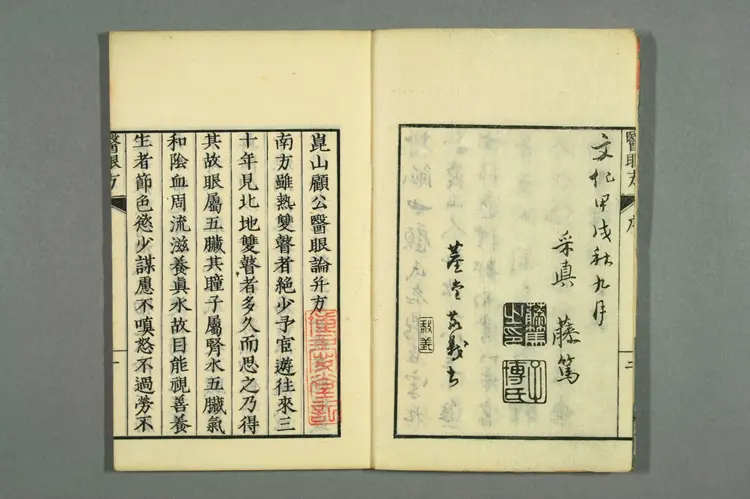 醫眼方
序
文化甲戌秋九月
采真 藤篤
藤篤
之印
子
博氏
二
崑山顧公醫眼論并方
南方雖熱雙瞽者絶少予宦遊往來三
十年見北地雙瞽者多久而思之乃得
其故眼屬五臟其瞳子屬腎水五臟氣
和陰血周流滋養眞水故目能視善養
生者節色慾少謀慮不嗔怒不過勞不
醫眼方
一